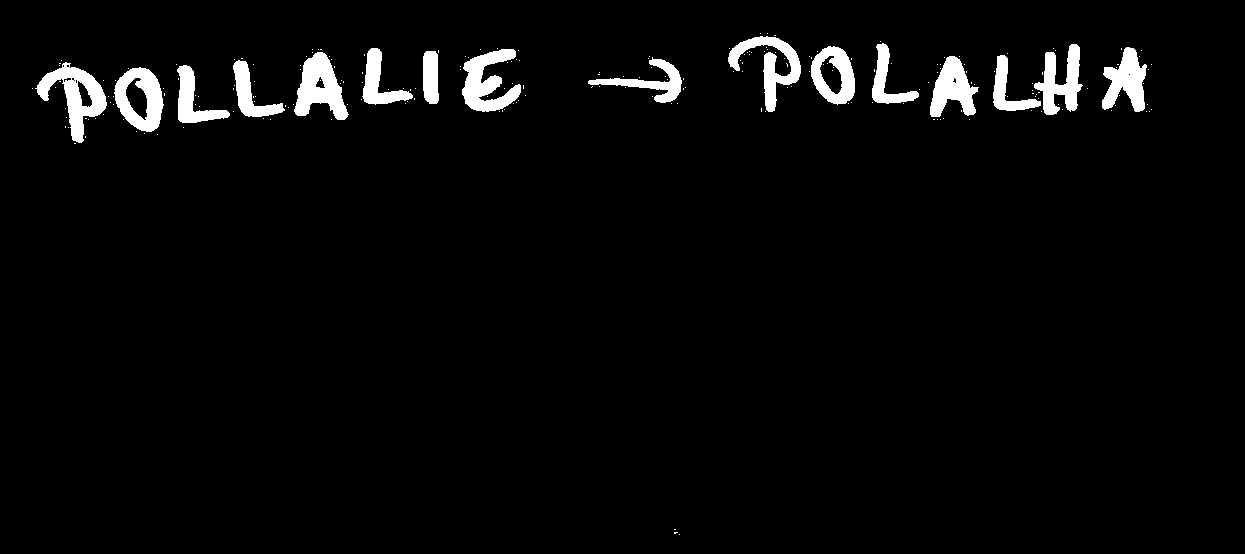 POLLALIE → POLALHA